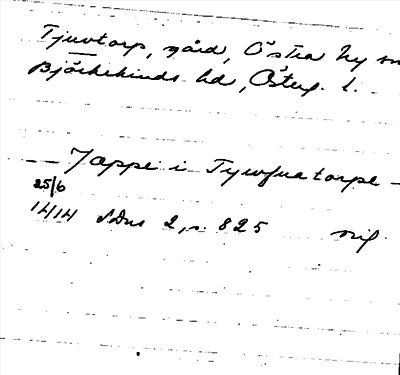 Tjuvtorp, gård, Östra Ny sn
Björkekinds hd, Österg. l.
— Jappe i Tywfuatorpe —
25/6
1414 SDns 2, s. 825 orig.